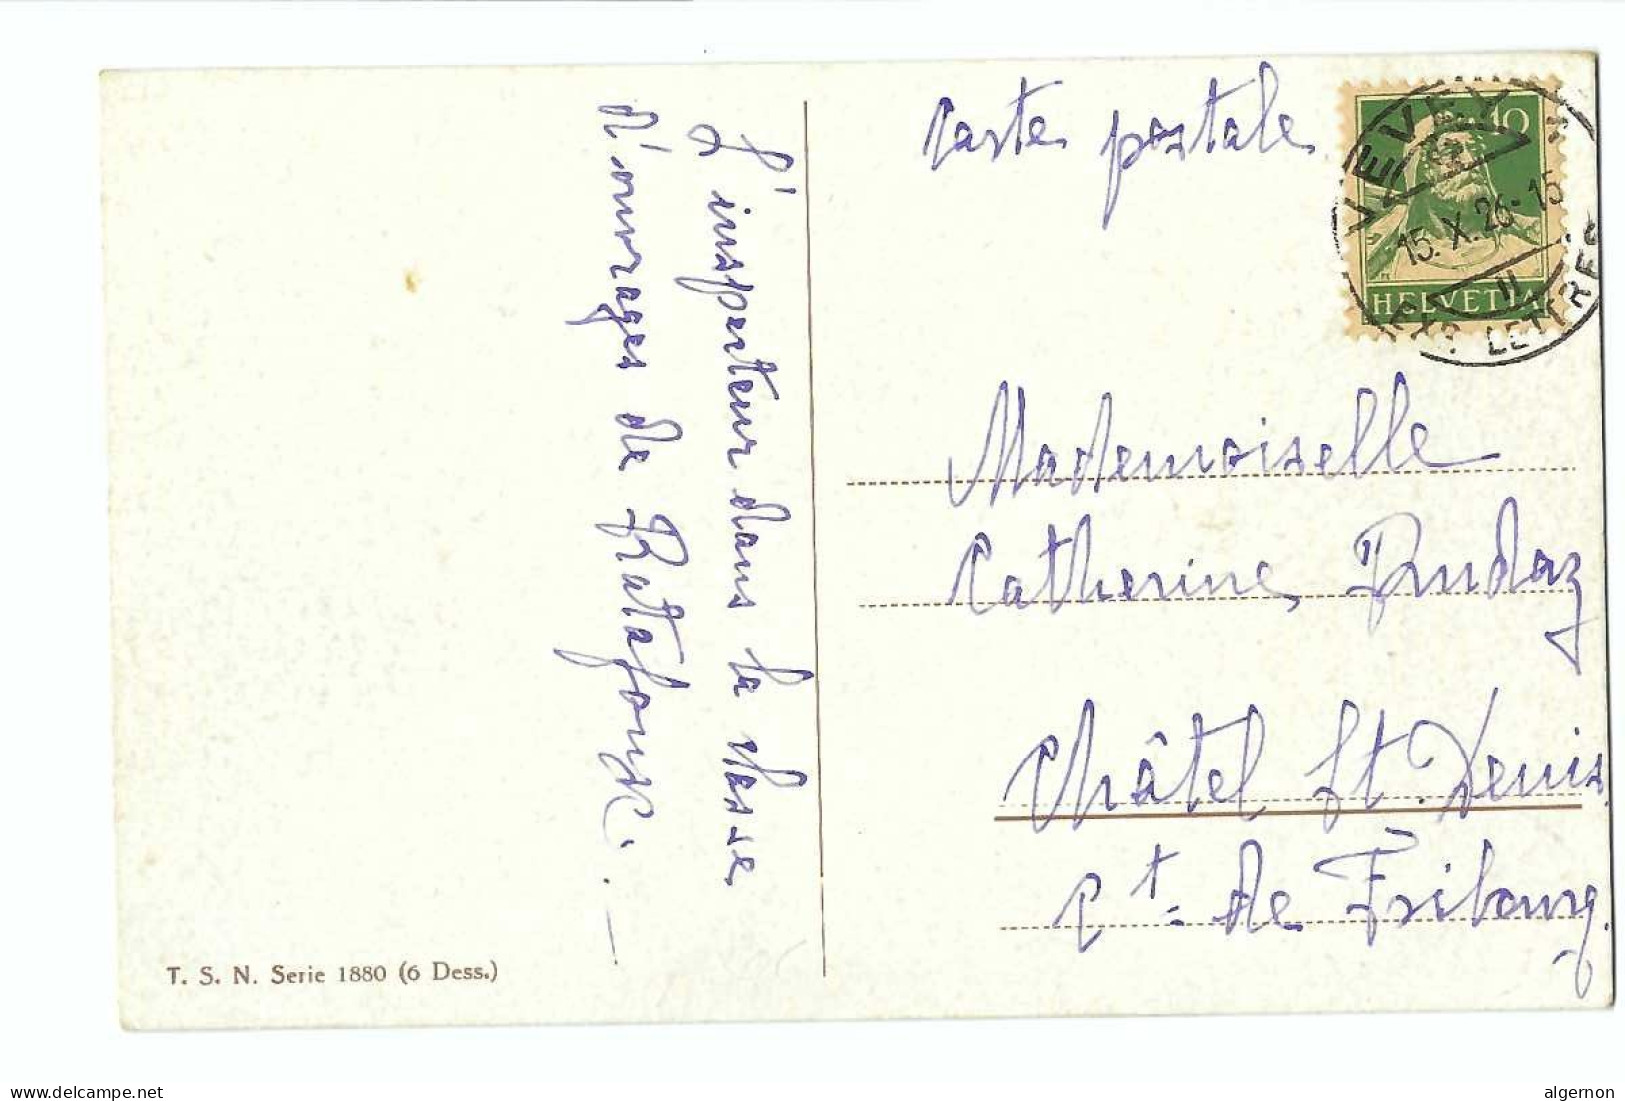 Carte postale
L'inspecteur dans la classe
d'ouvrages de
10
HELVETIA
VEVEY
15. X. 26 - 15
II
EXP. LETTRES
Mademoiselle
Catherine Dudaz
Châtel St. Denis.
Ct. de Fribourg.
T. S. N. Serie 1880 (6 Dess.)
delcampe.net
algernon